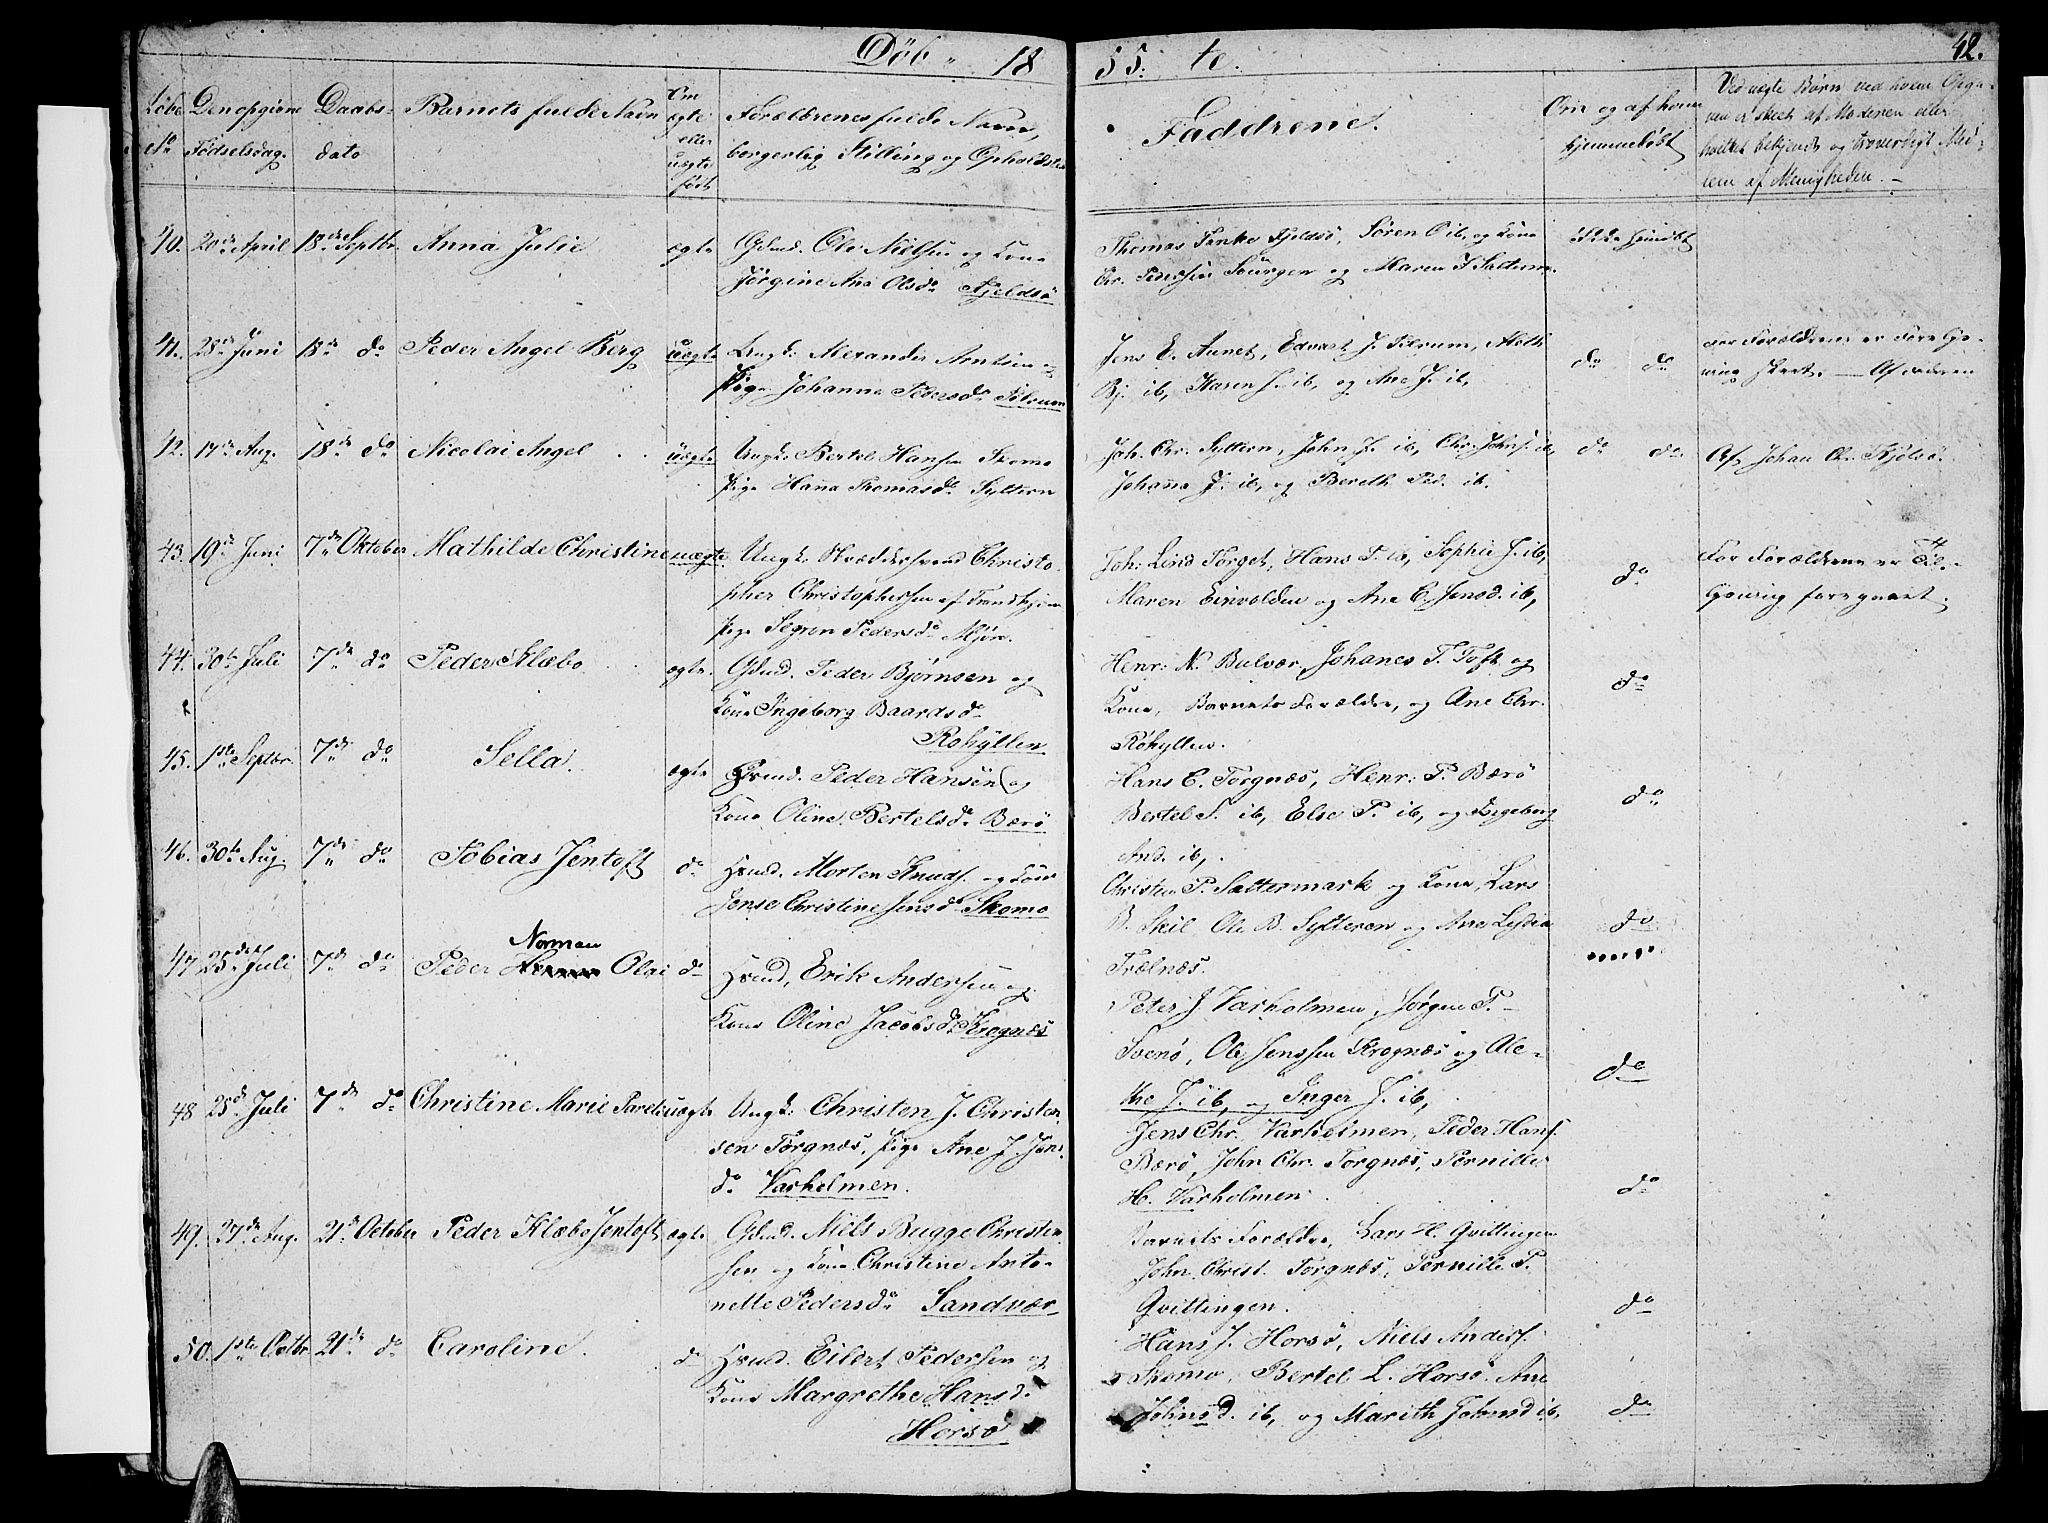 Döb 18
55. te.
42.
Løbe No
Den opgivne Fødselsdag.
Daabs-dato
Barnets fulde Navn
Om ægte eller uægte født
Forældrenes fulde Navn,
borgerlig Stilling og Opholdsted
Faddrene.
Om og af hvem hjemmedøbt
Ved uægte Børn, ved hvem Opga-
ven er skeet af Moderen eller
hvilket bekjendt og troværdigt Med-
lem af Menigheden. –
40. 20de April 18de Septbr. Anna Julie ægte Gdmd. Ole Nielsen og Kone
Jörgine Ana Olsdr Fjeldsö
Thomas Fjeldsö, Sören O. ib. og Kone
Chr. Pedersen og Maren J.
41. 28de Juni 18de do Peder Angel Berg uægte Ungk: Alexander Arntsen og
Pige Johanna Pedersdr
Jens E. Aunet, Edvart J.
Bj. ib, Karen J. ib, og Ane J. ib.
do do
for Forældrene er
skeet. – Af
42. 17de Aug. 18de do Nicolai Angel uægte Ungk: Bertel Hansen Skomo
Pige Hana Thomasdr Syltern
Joh. Chr. Syltern, John J. ib, Chr. Johns. ib,
Johanna J. ib, og Bereth Ped. ib.
do do
Af Johan Chr.
43. 19de Juni 7de Oktober Mathilde Christine uægte Ungk. Skræddersvend Christo-
pher Christophersen af Trondhjem
Pige Segron Pedersdr
Joh: Lind Torget, Hans P. ib, Sophie J. ib,
Maren og Ane C. Jensd. ib,
do
For Forældrene er
foregaaet.
44. 30te Juli 7de do Peder Klæbo ægte Gdmd. Peder Björnsen og
Kone Ingeborg Baardsdr
Røhyllen
Henr: N. Bulvær, Johanes T. Toft og
Kone, Barnets Forældre, og Ane Chr.
Røhyllen.
do
45. 1ste Septbr. 7de do Sella. ægte Hmd. Peder Hansen og
Kone Oline Bertelsdr Bærö
Hans C. Torgnæs, Henr: P. Bærö
Bertel S. ib, Else P. ib, og Ingeborg
And. ib,
do
46. 30te Aug. 7de do Tobias Jentoft do Hmd. Morten Knuds. og Kone
Jense Christine Jensd Skomo
Christen P. Saltermark og Kone, Lars
B. Skil Ole B. Sylteren og Ane Lydia
Trælnæs.
do
47. 25de Juli 7de do Peder Norman Olai do Hmd, Erik Andersen og
Kone Oline Jacobsdr Krognæs
Peter J Varholmen, Jörgen P.
Svenö, Ole Jenssen Krognæs og Ale-
the J. ib, og Inger J. ib,
do
48 25de Juli 7de do Christine Marie uægte Ungk: Christen J. Christen-
sen Torgnæs, Pige Ane J. Jens-
dr Varholmen.
Jens Chr. Varholmen, Peder Hans.
Bærö, John Chr. Torgnæs, Pernille
H. Varholmen
do
49. 27de Aug. 21de October Peder Klæbo Jentoft ægte Gdmd. Niels Bugge Christen-
sen og Kone Christine Anto-
nette Pedersdr Sandvær
Barnets Forældre, Lars H. Qvittingen
John Christ. Torgnæs, Pernille P.
Qvittingen.
do
50. 1ste Octbr 21de do Caroline. do Hmd. Eilert Pedersen og
Kone Margrethe Hansd.
Horsö
Hans J. Horsö, Niels Anders.
Skomo, Bertel L. Horsö. Ane
Johnsd. ib, og Marith Johnsd ib,
do